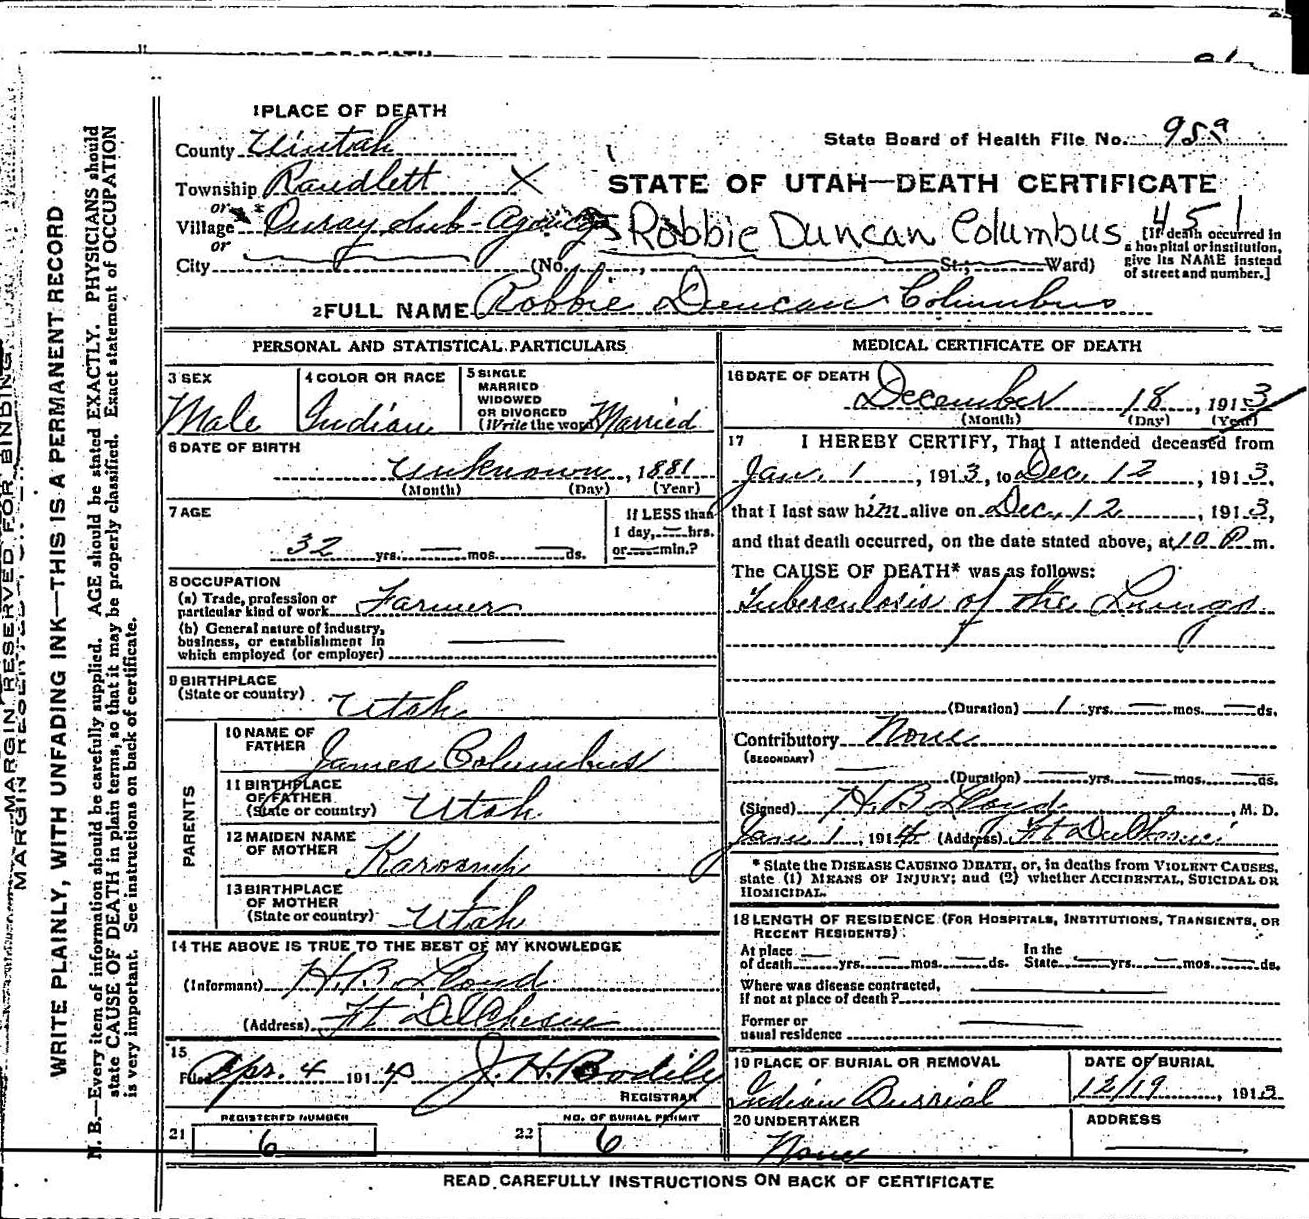 1 PLACE OF DEATH
County Uintah
State Board of Health File No. 959
Township Randlett X
STATE OF UTAH—DEATH CERTIFICATE
or
Village Ouray Sub-Agency
Robbie Duncan Columbus 451
or
City (No. , St.; Ward)
[If death occurred in
a hospital or institution,
give its NAME instead
of street and number.]
2 FULL NAME Robbie Duncan Columbus
PERSONAL AND STATISTICAL PARTICULARS
3 SEX
Male
4 COLOR OR RACE
Indian
5 SINGLE
MARRIED
WIDOWED
OR DIVORCED
(Write the word) Married
6 DATE OF BIRTH
Unknown, 1881
(Month) (Day) (Year)
7 AGE
32 yrs. — mos. — ds.
If LESS than
1 day, — hrs.
or — min.?
8 OCCUPATION
(a) Trade, profession or
particular kind of work Farmer
(b) General nature of industry,
business, or establishment in
which employed (or employer)
9 BIRTHPLACE
(State or country) Utah
PARENTS
10 NAME OF
FATHER James Columbus
11 BIRTHPLACE
OF FATHER
(State or country) Utah
12 MAIDEN NAME
OF MOTHER
13 BIRTHPLACE
OF MOTHER
(State or country) Utah
14 THE ABOVE IS TRUE TO THE BEST OF MY KNOWLEDGE
(Informant) H. B. Lloyd
(Address) Ft Duchesne
15
Filed Apr. 4 1914 J. H. Bodily
REGISTRAR
REGISTERED NUMBER
21 6
NO. OF BURIAL PERMIT
22 6
MEDICAL CERTIFICATE OF DEATH
16 DATE OF DEATH
December 18, 1913
(Month) (Day) (Year)
17 I HEREBY CERTIFY, That I attended deceased from
Jan. 1, 1913, to Dec. 12, 1913,
that I last saw him alive on Dec. 12, 1913,
and that death occurred, on the date stated above, at 10 P m.
The CAUSE OF DEATH* was as follows:
Tuberculosis of the Lungs
(Duration) 1 yrs. — mos. — ds.
Contributory None
(SECONDARY)
(Duration) — yrs. — mos. — ds.
(Signed) H. B. Lloyd, M. D.
Jan. 1, 1914 (Address) Ft Duchesne
* State the DISEASE CAUSING DEATH, or, in deaths from VIOLENT CAUSES,
state (1) MEANS OF INJURY; and (2) whether ACCIDENTAL, SUICIDAL OR
HOMICIDAL.
18 LENGTH OF RESIDENCE (FOR HOSPITALS, INSTITUTIONS, TRANSIENTS, OR
RECENT RESIDENTS)
At place of death — yrs. — mos. — ds. In the State — yrs. — mos. — ds.
Where was disease contracted,
if not at place of death?
Former or
usual residence
19 PLACE OF BURIAL OR REMOVAL
Indian Burrial
DATE OF BURIAL
12/19, 1913
20 UNDERTAKER
None
ADDRESS
READ CAREFULLY INSTRUCTIONS ON BACK OF CERTIFICATE
MARGIN RESERVED FOR BINDING
WRITE PLAINLY, WITH UNFADING INK—THIS IS A PERMANENT RECORD
N. B.—Every item of information should be carefully supplied. AGE should be stated EXACTLY. PHYSICIANS should
state CAUSE OF DEATH in plain terms, so that it may be properly classified. Exact statement of OCCUPATION
is very important. See instructions on back of certificate.